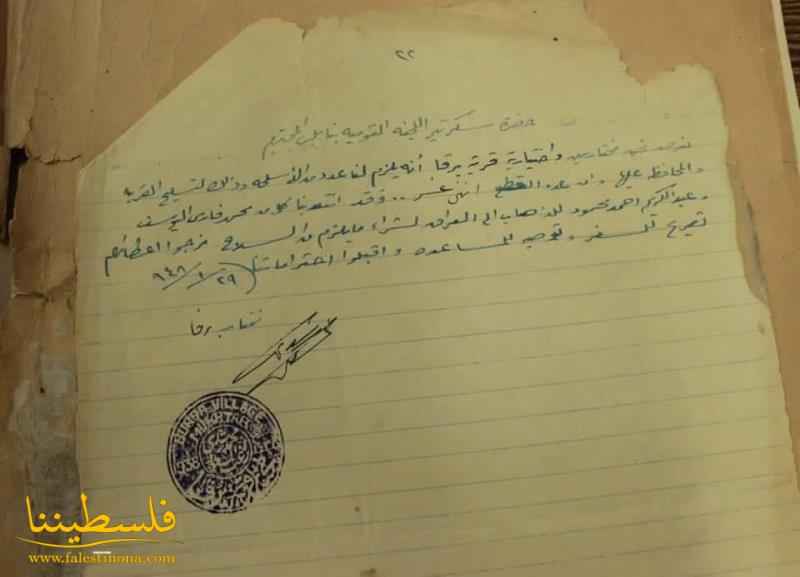 ٢٢
حضرة سكرتير اللجنة القومية بنابلس المحترم
نحن مختارين واختيارية قرية برقا أنه يلزم لنا عدد من الأسلحة وذلك لتسليح القرية
والمحافظة عليها وان عدد القطع اثنتي عشر .. وقد انتدبنا كل من محمد فارس
وعبد الكريم احمد محمود للذهاب الى العراق لشراء ما يلزم من السلاح نرجوا اعطائهم
تصريح للسفر وتوصيه للمساعده واقبلوا احتراماتنا ٢٩/١/٩٤٨
مختار برقا
BURQA VILLAGE
MUKHTAR
فلسطيننا
www.falestinona.com